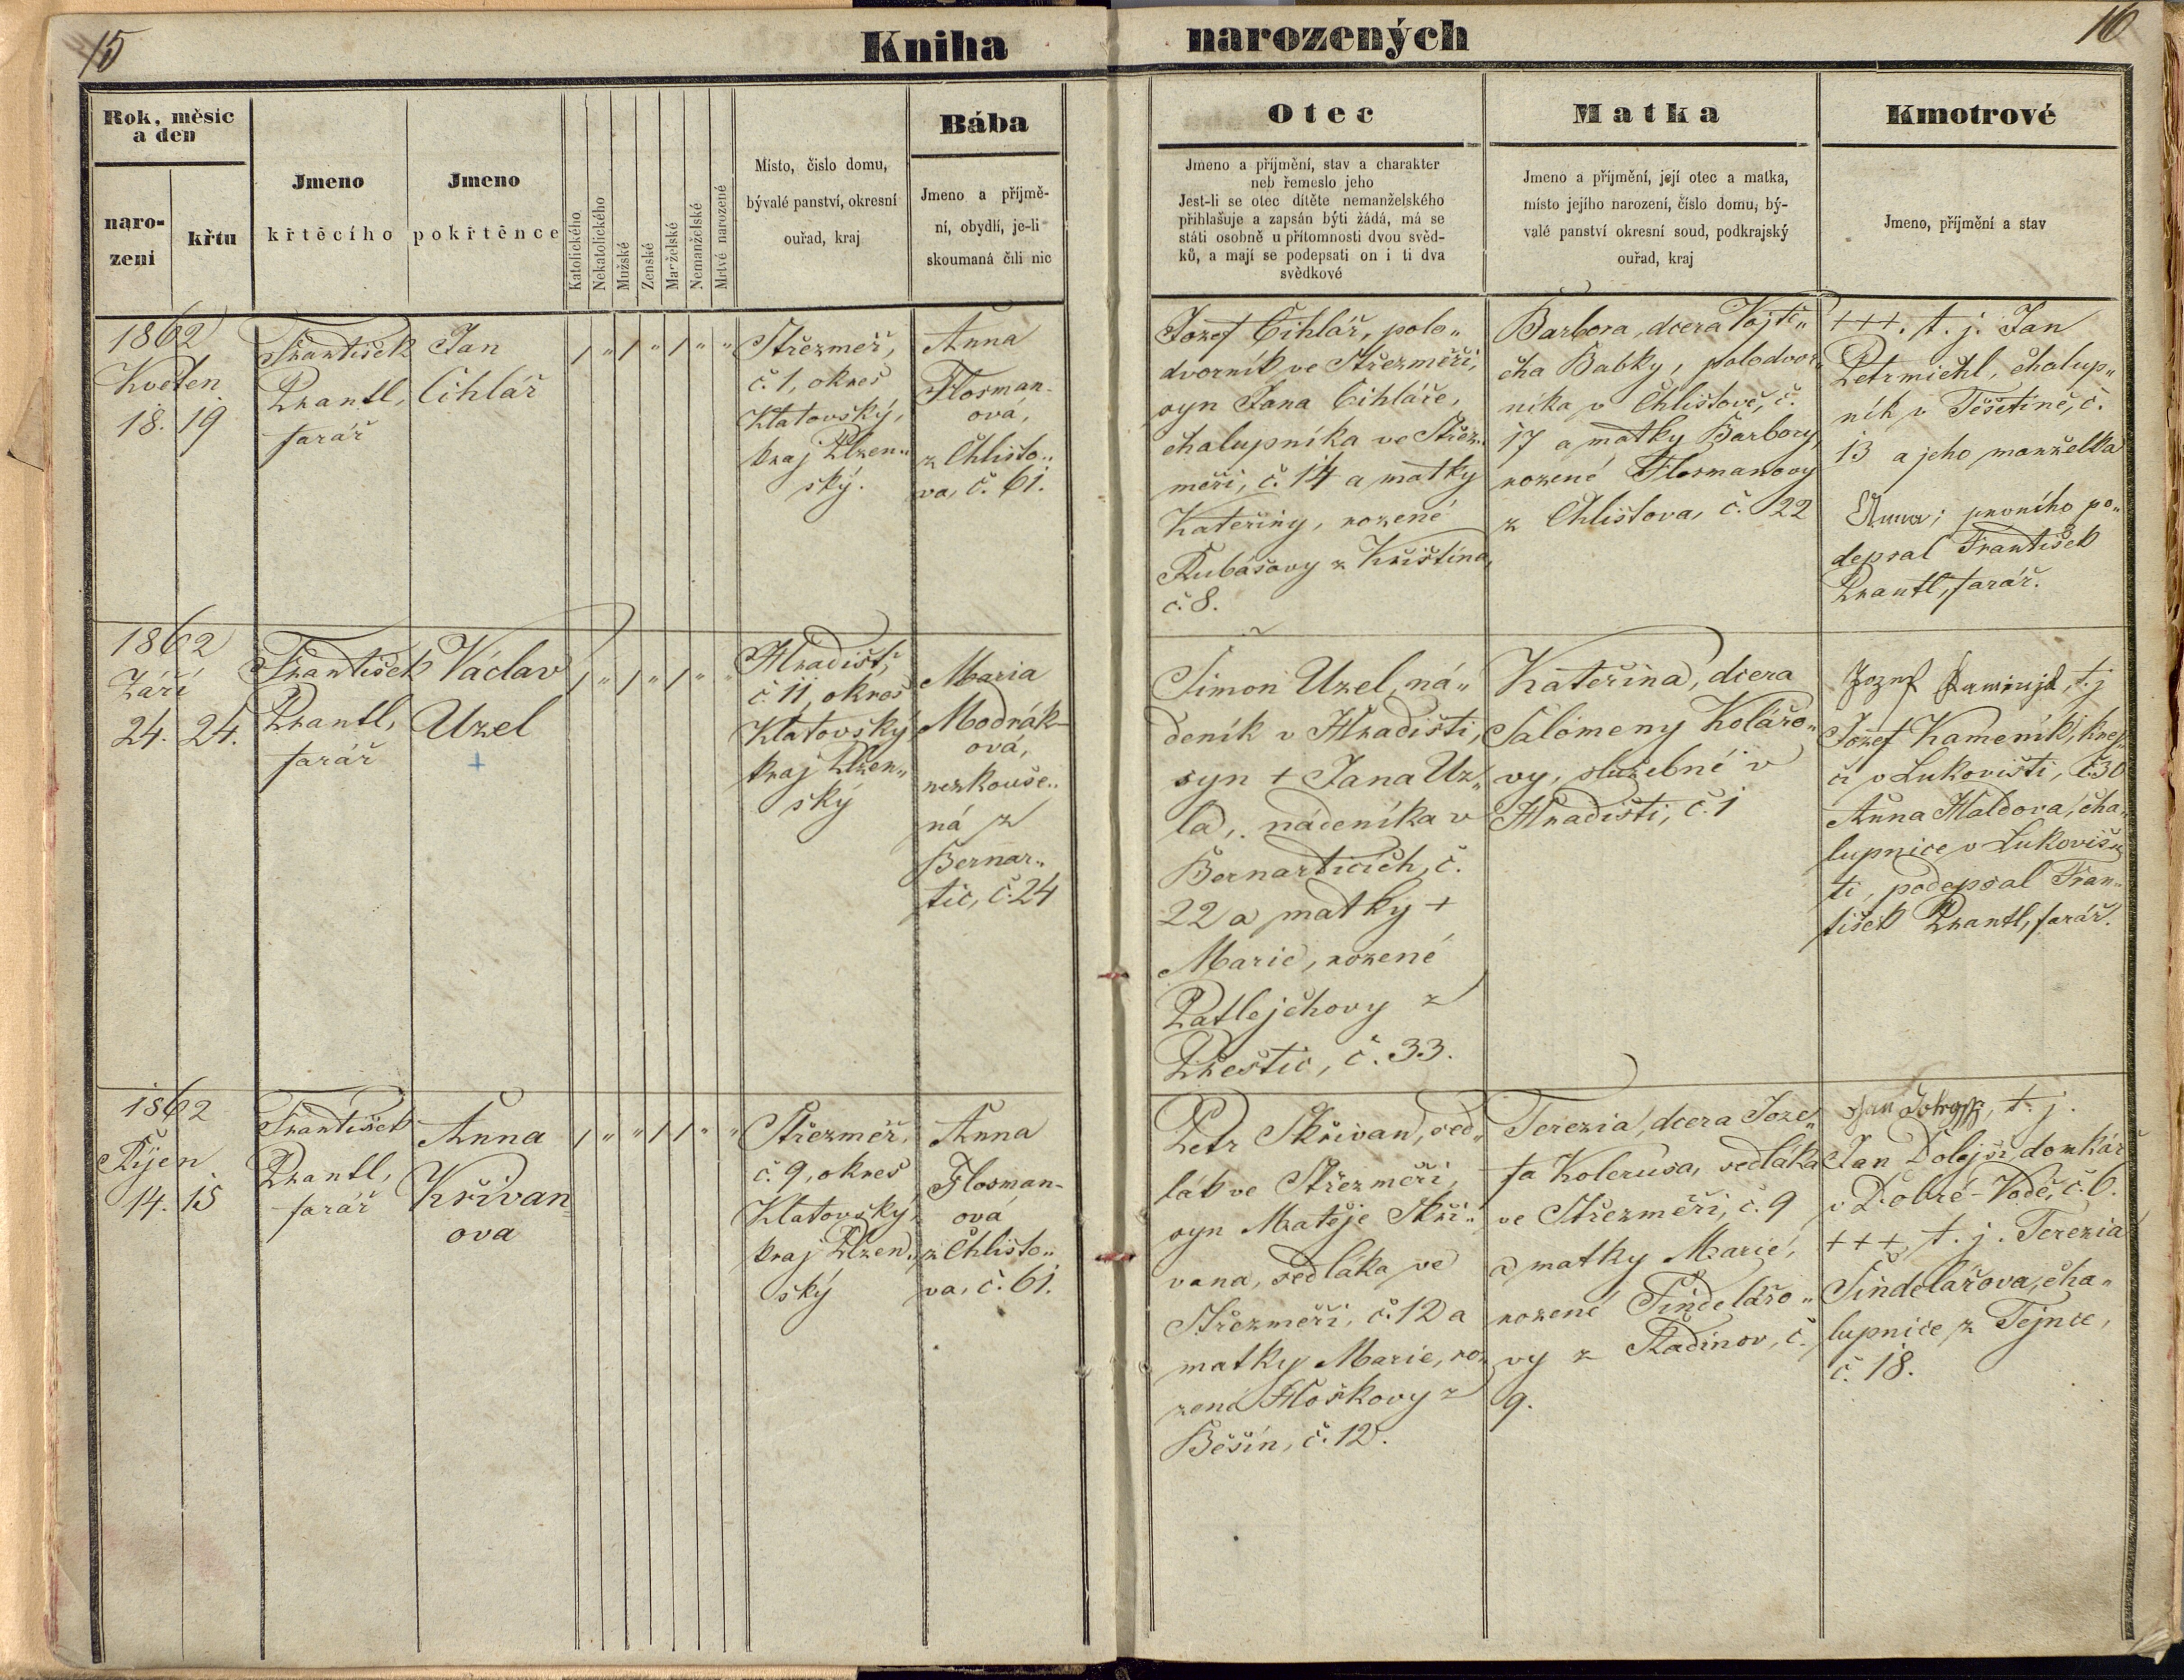 15
Kniha
narozených
16
Rok, měsic
a den
naro-
zeni
křtu
Jmeno
křtěcího
Jmeno
pokřtěnce
Katolického
Nekatolického
Mužské
Zenské
Manželské
Nemanželské
Mrtvě narozené
Misto, čislo domu,
bývalé panství, okresní
ouřad, kraj
Bába
Jmeno a příjmě-
ní, obydlí, je-li
skoumaná čili nic
Otec
Jmeno a příjmění, stav a charakter
neb řemeslo jeho
Jest-li se otec dítěte nemanželského
přihlašuje a zapsán býti žádá, má se
státi osobně u přítomnosti dvou svěd-
ků, a mají se podepsati on i ti dva
svědkové
Matka
Jmeno a příjmění, její otec a matka,
místo jejího narození, číslo domu, bý-
valé panství okresní soud, podkrajský
ouřad, kraj
Kmotrové
Jmeno, příjmění a stav
1862
Květen
18. 19.
František
Prantl,
farář
Jan
Cihlář
/ " / " / " "
Střezmeř,
č. 1, okres
Klatovský,
kraj Plzen„
ský.
Anna
Flosman-
ová,
z Chlisto„
va, č. 61.
Jozef Cihlář, polo„
dvorník ve Střezměři,
syn Jana Cihláře,
chalupníka ve Střez„
měři, č. 14 a matky
Kateřiny, rozené
Rubášovy z Křištína,
č. 8.
Barbora, dcera Vojtě„
cha Babky, polodvor„
níka v Chlistově, č.
17 a matky Barbory,
rozené Flosmanovy
z Chlistova, č. 22
+++. t. j. Jan
Petrmichl, chalup„
ník v Těšetině, č.
13 a jeho manželka
Anna; prvního po„
depsal František
Prantl, farář.
1862
Září
24. 24.
František
Prantl,
farář
Václav
Uzel
+
/ " / " / " "
Hradišt,
č. 11, okres
Klatovský
kraj Plzen„
ský
Maria
Modrák-
ová,
nezkouše„
ná z
Bernar„
tic, č. 24
Šimon Uzel, ná„
deník v Hradišti,
syn + Jana Uz„
la, nádeníka v
Bernarticích, č.
22 a matky +
Marie, rozené
Patlejchovy z
Přestic, č. 33.
Kateřina, dcera
Salomeny Kolářo„
vy, služebné v
Hradišti, č. 1
Jozef t. j.
Jozef Kameník, krej„
čí v Lukovišti, č. 30
Anna Haldova, cha„
lupnice v Lukoviš„
ti, podepsal Fran„
tišek Prantl, farář.
1862
Říjen
14. 15
František
Prantl,
farář
Anna
Křivan=
ova
/ " " / / " "
Střezmeř,
č. 9, okres
Klatovský,
kraj Plzen„
ský
Anna
Flosman-
ová
z Chlisto„
va, č. 61.
Petr Skřivan, sed„
lák ve Střezměři,
syn Matěje Skři„
vana, sedláka ve
Střezměři, č. 12 a
matky Marie, ro„
zené Hoškovy z
Běšín, č. 12.
Terezia, dcera Joze„
fa Kolerusa, sedláka
ve Střezměři, č. 9
a matky Marie,
rozené Šindelářo„
vy z Radinov, č.
9.
Jan t. j.
Jan Dolejší, domkář
v Dobré-Vodě, č. 6.
+++, t. j. Terezia
Šindelářova, cha„
lupnice z Tejnce,
č. 18.